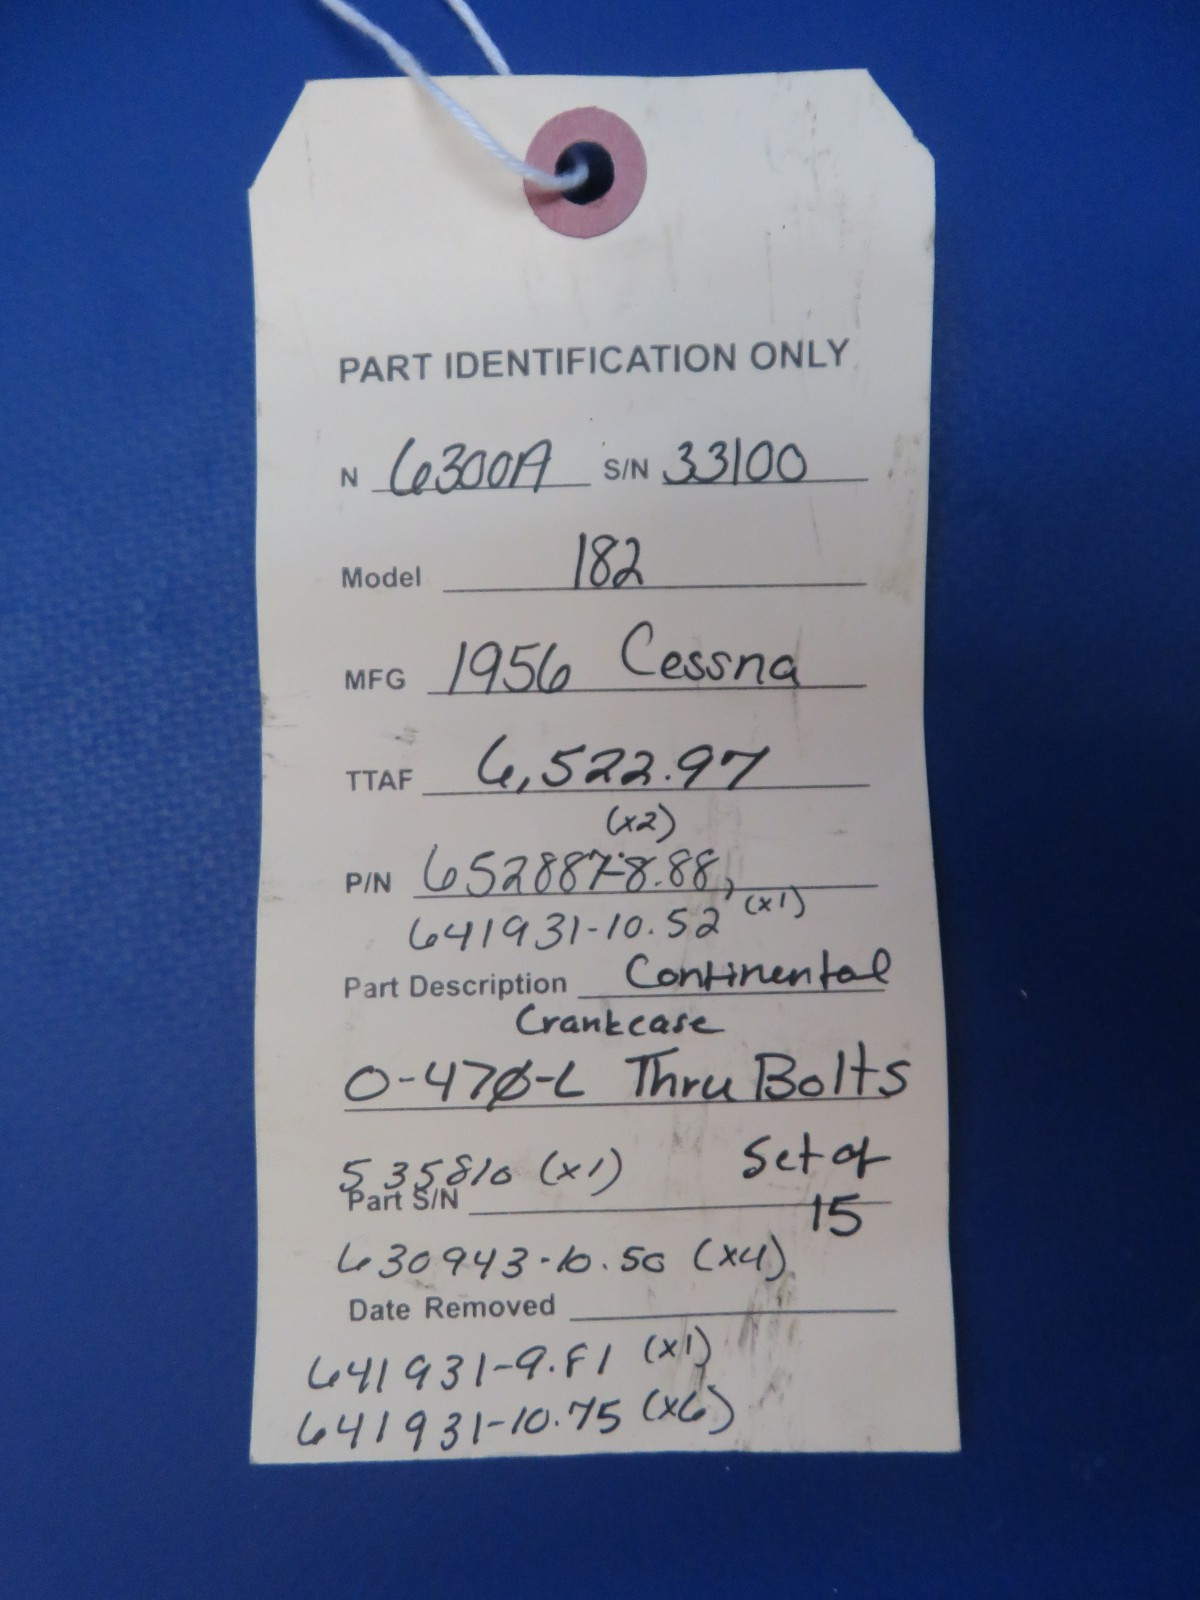 PART IDENTIFICATION ONLY
N 6300A S/N 33100
Model 182
MFG 1956 Cessna
TTAF 6,522.97
(x2)
P/N 652887-8.88,
641931-10.52 (x1)
Part Description Continental
Crankcase
O-470-L Thru Bolts
535810 (x1) Set of
Part S/N 15
630943-10.50 (x4)
Date Removed
641931-9.F1 (x1)
641931-10.75 (x6)